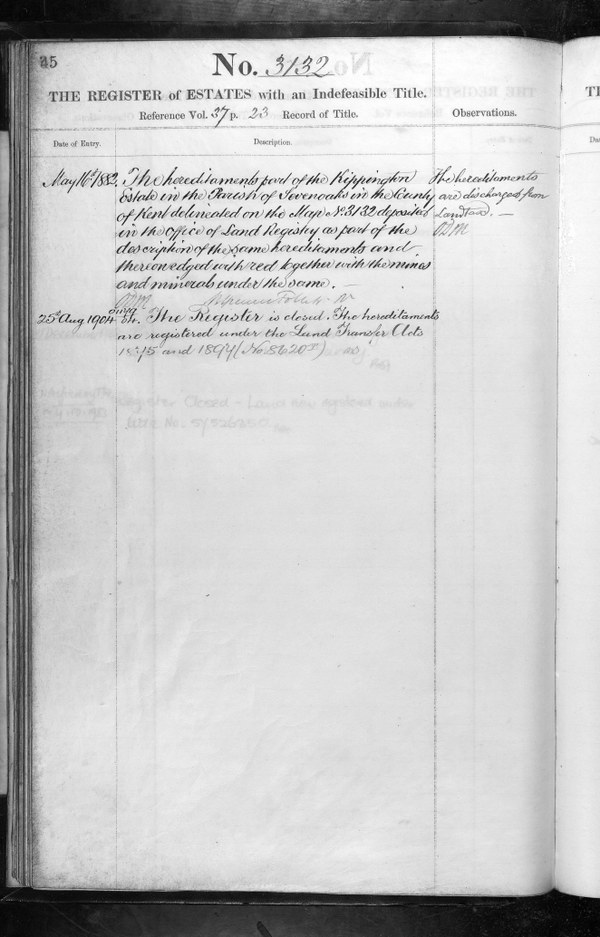 45
No. 3132
THE REGISTER of ESTATES with an Indefeasible Title.
Reference Vol. 37 p. 23 Record of Title.
Observations.
Date of Entry.
Description.
May 16th 1882.
The hereditaments part of the Kippington
Estate in the Parish of Sevenoaks in the County
of Kent delineated on the Map No. 3132 deposited
in the Office of Land Registry as part of the
description of the same hereditaments and
thereon edged with red together with the mines
and minerals under the same. —
The hereditaments
are discharged from
Land Tax. —
25th Aug 1904
The Register is closed. The hereditaments
are registered under the Land Transfer Acts
1875 and 1897 (No. 86207)
Register Closed - Land now registered under
Title No.